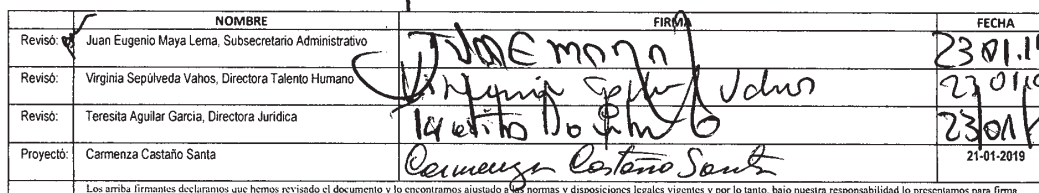 NOMBRE FIRMA FECHA
Revisó: Juan Eugenio Maya Lema, Subsecretario Administrativo 23 01.1
Revisó: Virginia Sepúlveda Vahos, Directora Talento Humano Virginia Sepulveda Vahos 23 01
Revisó: Teresita Aguilar Garcia, Directora Jurídica 23 01
Proyectó: Carmenza Castaño Santa Carmenza Castaño Santa 21-01-2019
Los arriba firmantes declaramos que hemos revisado el documento y lo encontramos ajustado a las normas y disposiciones legales vigentes y por lo tanto, bajo nuestra responsabilidad lo presentamos para firma